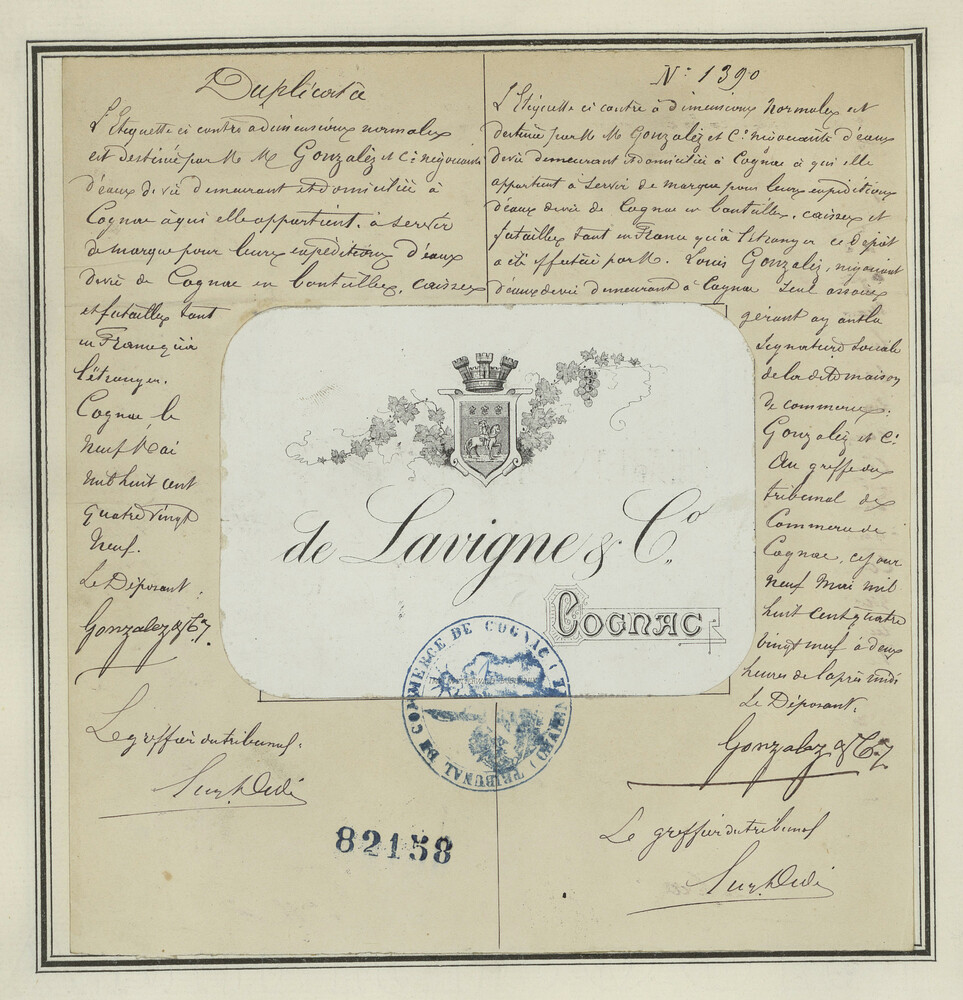 Duplicata
L'Etiquette ci contre à dimensions normales
est destinée par M M Gonzalèz et Cie négociants
d'eaux de vie demeurant et domiciliée à
Cognac à qui elle appartient, à servir
de marque pour leurs expéditions d'eaux
de vie de Cognac en bouteilles, caisses
et futailles tant
en France qu'à
l'étranger.
Cognac, le
neuf Mai
mil huit cent
quatre vingt
neuf.
Le Déposant.
Gonzalez & Cy
Le greffier du tribunal.
N° 1390
L'Etiquette ci contre à dimensions normales est
destinée par M M Gonzalèz et Cie négociants d'eaux
de vie demeurant et domiciliée à Cognac à qui elle
appartient à servir de marque pour leurs expéditions
d'eaux de vie de Cognac en bouteilles, caisses et
futailles tant en France qu'à l'étranger ce Dépôt
a été effectué par M. Louis Gonzalèz, négociant
d'eaux de vie demeurant à Cognac seul associé
gérant ayant la
signature sociale
de la dite maison
de commerce.
Gonzalèz et Cie
Au greffe du
tribunal de
Commerce de
Cognac, ce jour
neuf Mai mil
huit cent quatre
vingt neuf à deux
heures de l'après midi
Le Déposant.
Gonzalez & Cy
Le greffier du tribunal
de Lavigne & Co.
COGNAC
TRIBUNAL DE COMMERCE DE COGNAC (CHARENTE)
82158